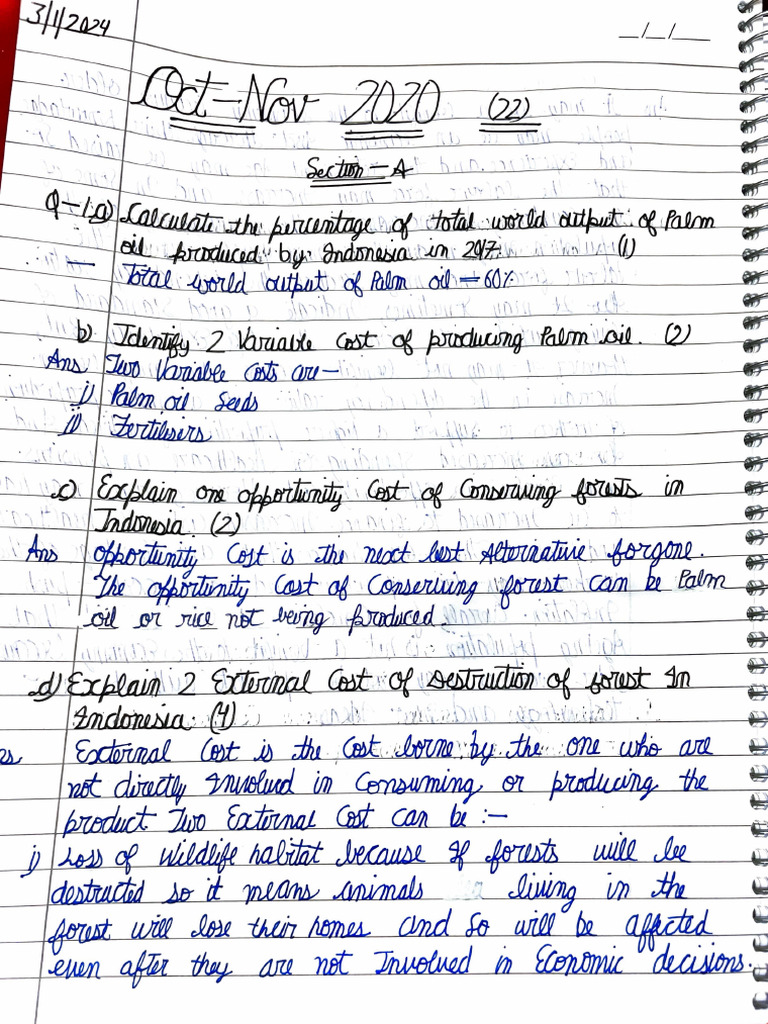 3/1/2024
_/_/_
Oct-Nov 2020 (22)
Section-A
Q-1.a) Calculate the percentage of total world output of Palm
oil produced by Indonesia in 2017. (1)
— Total world output of Palm oil = 60%
b) Identify 2 Variable Cost of producing Palm oil. (2)
Ans Two Variable Costs are-
i) Palm oil Seeds
ii) Fertilisers
c) Explain one opportunity Cost of Conserving forests in
Indonesia. (2)
Ans Opportunity Cost is the next best Alternative forgone.
The opportunity Cost of Conserving forest can be Palm
oil or rice not being produced.
d) Explain 2 External Cost of Destruction of forest In
Indonesia. (4)
External Cost is the Cost borne by the one who are
not directly Involved in Consuming or producing the
product Two External Cost can be :-
i) Loss of Wildlife habitat because If forests will be
destructed so it means animals living in the
forest will lose their homes and So will be affected
even after they are not Involved in Economic decisions.